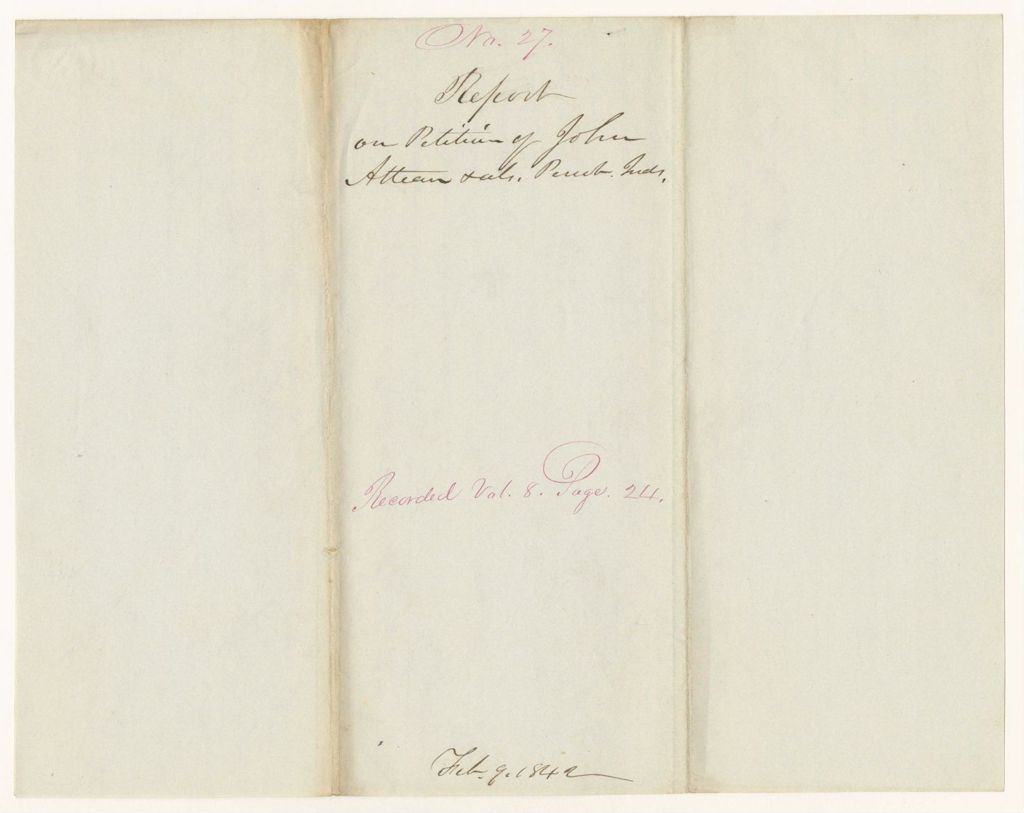 No. 27.
Report
on Petition of John
Attean & als. Penob. Inds.
Recorded Vol. 8. Page. 24.
Feb. 9. 1842